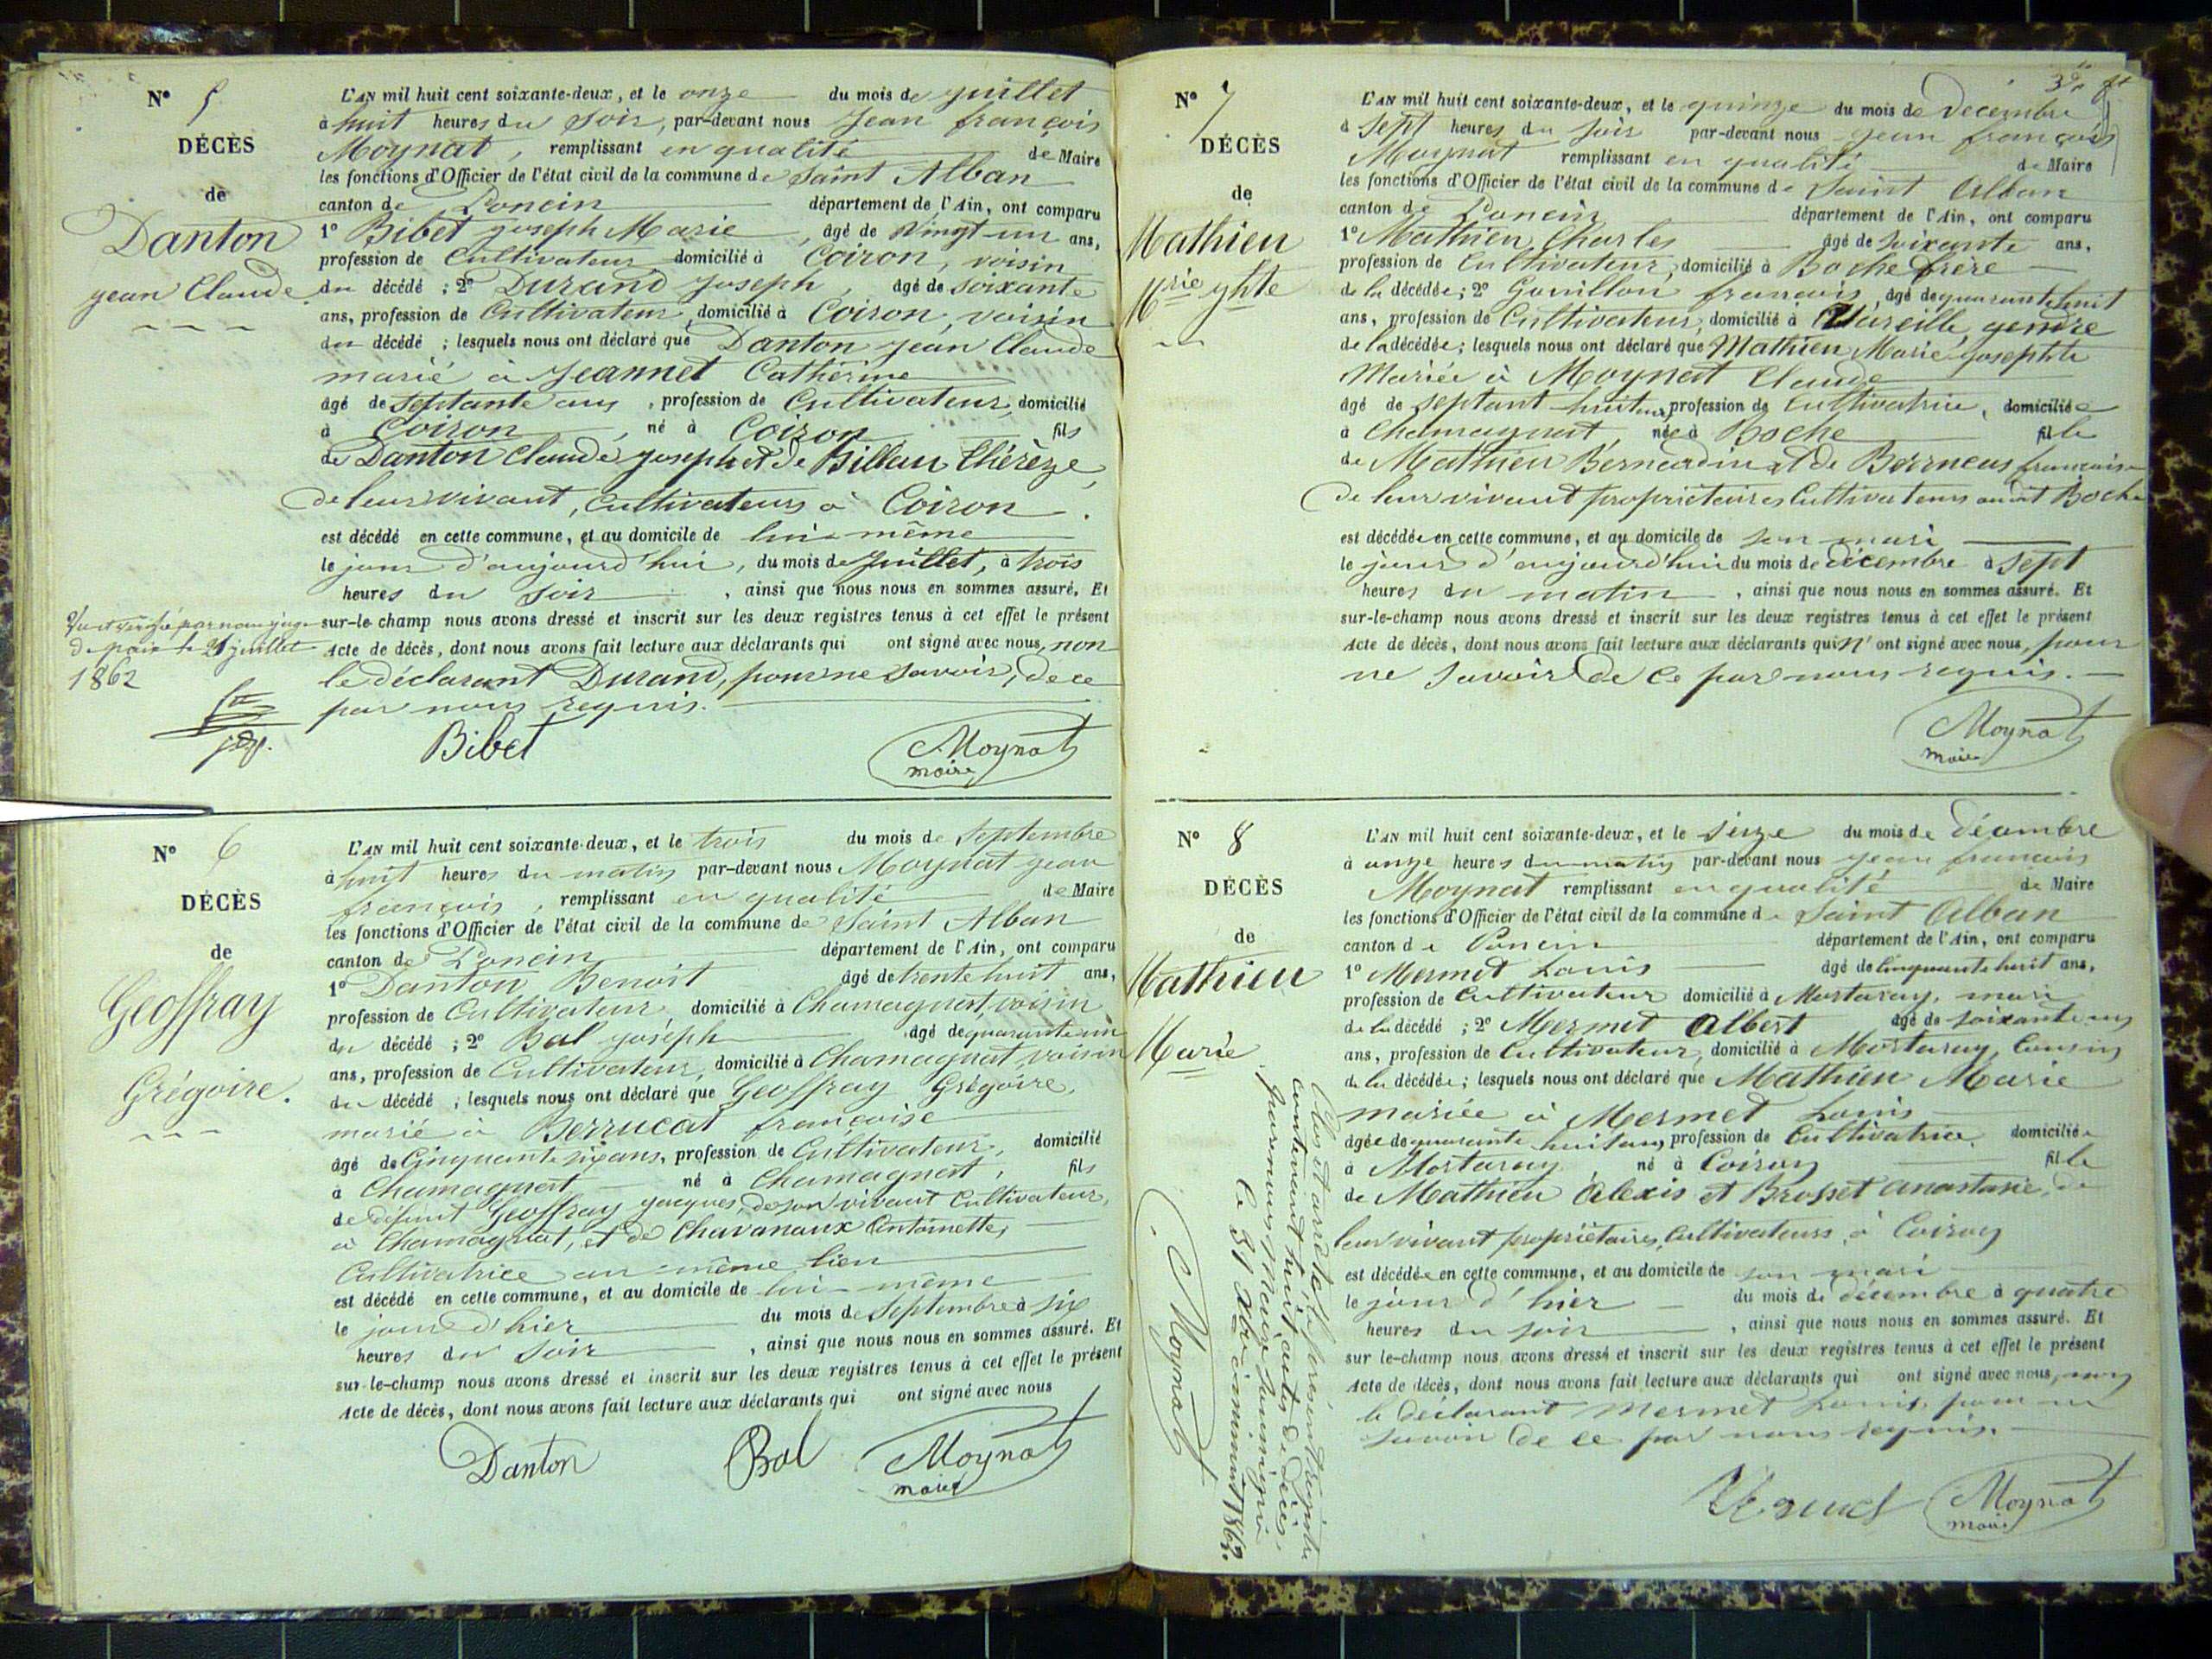 N° 5
DÉCÈS
de
Danton
jean Claude
L'AN mil huit cent soixante-deux, et le onze du mois de juillet
à huit heures du soir, par-devant nous Jean françois
Moynat, remplissant en qualité de Maire
les fonctions d'Officier de l'état civil de la commune de Saint Alban
canton de Poncin département de l'Ain, ont comparu
1° Bibet joseph Marie, âgé de vingt-un ans,
profession de Cultivateur domicilié à Coiron, voisin
du décédé ; 2° Durand joseph, âgé de soixante
ans, profession de Cultivateur, domicilié à Coiron, voisin
du décédé ; lesquels nous ont déclaré que Danton jean Claude
marié à Jeannet Catherine
âgé de septante ans, profession de Cultivateur, domicilié
à Coiron, né à Coiron fils
de Danton Claude joseph et de Billau Thérèze,
de leur vivant, Cultivateurs à Coiron.
est décédé en cette commune, et au domicile de lui-même
le jour d'aujourd'hui, du mois de juillet, à trois
heures du soir, ainsi que nous nous en sommes assuré. Et
sur-le-champ nous avons dressé et inscrit sur les deux registres tenus à cet effet le présent
Acte de décès, dont nous avons fait lecture aux déclarants qui ont signé avec nous, non
le déclarant Durand, pour ne savoir, de ce
par nous requis.
Vu et vérifié par nous juge
de paix le 21 juillet
1862
Bibet
Moynat
maire
N° 6
DÉCÈS
de
Geoffray
Grégoire.
L'AN mil huit cent soixante-deux, et le trois du mois de Septembre
à huit heures du matin par-devant nous Moynat jean
françois, remplissant en qualité de Maire
les fonctions d'Officier de l'état civil de la commune de Saint Alban
canton de Poncin département de l'Ain, ont comparu
1° Danton Benoit âgé de trente huit ans,
profession de Cultivateur, domicilié à Chamagnat, voisin
du décédé ; 2° Bal joséph âgé de quarante un
ans, profession de Cultivateur, domicilié à Chamagnat, voisin
du décédé ; lesquels nous ont déclaré que Geoffray Grégoire,
marié à Berrucat françoise
âgé de Cinquante six ans, profession de Cultivateur, domicilié
à Chamagnat né à Chamagnat, fils
de défunt Geoffray jacques, de son vivant Cultivateur,
à Chamagnat, et de Chavanaux Antoinette,
Cultivatrice au même lieu
est décédé en cette commune, et au domicile de lui-même
le jour d'hier du mois de Septembre à six
heures du soir, ainsi que nous nous en sommes assuré. Et
sur-le-champ nous avons dressé et inscrit sur les deux registres tenus à cet effet le présent
Acte de décès, dont nous avons fait lecture aux déclarants qui ont signé avec nous
Danton Bal Moynat
maire
N° 7
DÉCÈS
de
Mathieu
Mrie jphte
L'AN mil huit cent soixante-deux, et le quinze du mois de decembre
à sept heures du soir par-devant nous jean françois
Moynat remplissant en qualité de Maire
les fonctions d'Officier de l'état civil de la commune de Saint Alban
canton de Poncin département de l'Ain, ont comparu
1° Mathieu Charles âgé de soixante ans,
profession de Cultivateur, domicilié à Boche frère
de la décédée ; 2° Gouillon françois, âgé de quarante huit
ans, profession de Cultivateur, domicilié à Mareille, gendre
de la décédée ; lesquels nous ont déclaré que Mathieu Marie josephte
Mariée à Moynat Claude
âgé de septant huit ans profession de Cultivatrice, domiciliée
à Chamagnat, née à Boche fille
de Mathieu Bernardin et de françoise
de leur vivant propriétaires Cultivateurs au dit Boche
est décédée en cette commune, et au domicile de son mari
le jour d'aujourd'hui du mois de décembre à sept
heures du matin, ainsi que nous nous en sommes assuré. Et
sur-le-champ nous avons dressé et inscrit sur les deux registres tenus à cet effet le présent
Acte de décès, dont nous avons fait lecture aux déclarants qui n'ont signé avec nous, pour
ne savoir de ce par nous requis.
Moynat
maire
N° 8
DÉCÈS
de
Mathieu
Marie
L'AN mil huit cent soixante-deux, et le seize du mois de décembre
à onze heures du matin par-devant nous jean françois
Moynat remplissant en qualité de Maire
les fonctions d'Officier de l'état civil de la commune de Saint Alban
canton de Poncin département de l'Ain, ont comparu
1° Mermet Louis âgé de cinquante huit ans,
profession de Cultivateur domicilié à Mortaray, mari
de la décédé ; 2° Mermet Albert âgé de soixante un
ans, profession de Cultivateur, domicilié à Mortaray, Cousin
de la décédée ; lesquels nous ont déclaré que Mathieu Marie
mariée à Mermet Louis
âgée de quarante huit ans, profession de Cultivatrice, domiciliée
à Mortaray, né à Coiron fille
de Mathieu Alexis et Brosset anastasie, de
leur vivant propriétaires, Cultivateurs, à Coiron
est décédée en cette commune, et au domicile de son mari
le jour d'hier du mois de décembre à quatre
heures du soir, ainsi que nous nous en sommes assuré. Et
sur le-champ nous avons dressé et inscrit sur les deux registres tenus à cet effet le présent
Acte de décès, dont nous avons fait lecture aux déclarants qui ont signé avec nous, non
le déclarant Mermet Louis, pour ne
savoir de ce par nous requis.
Moynat
maire
Clos et arrêté, le présent registre
contenant huit actes de décès,
par nous Maire soussigné
le 31 Xbre 1862.
Moynat